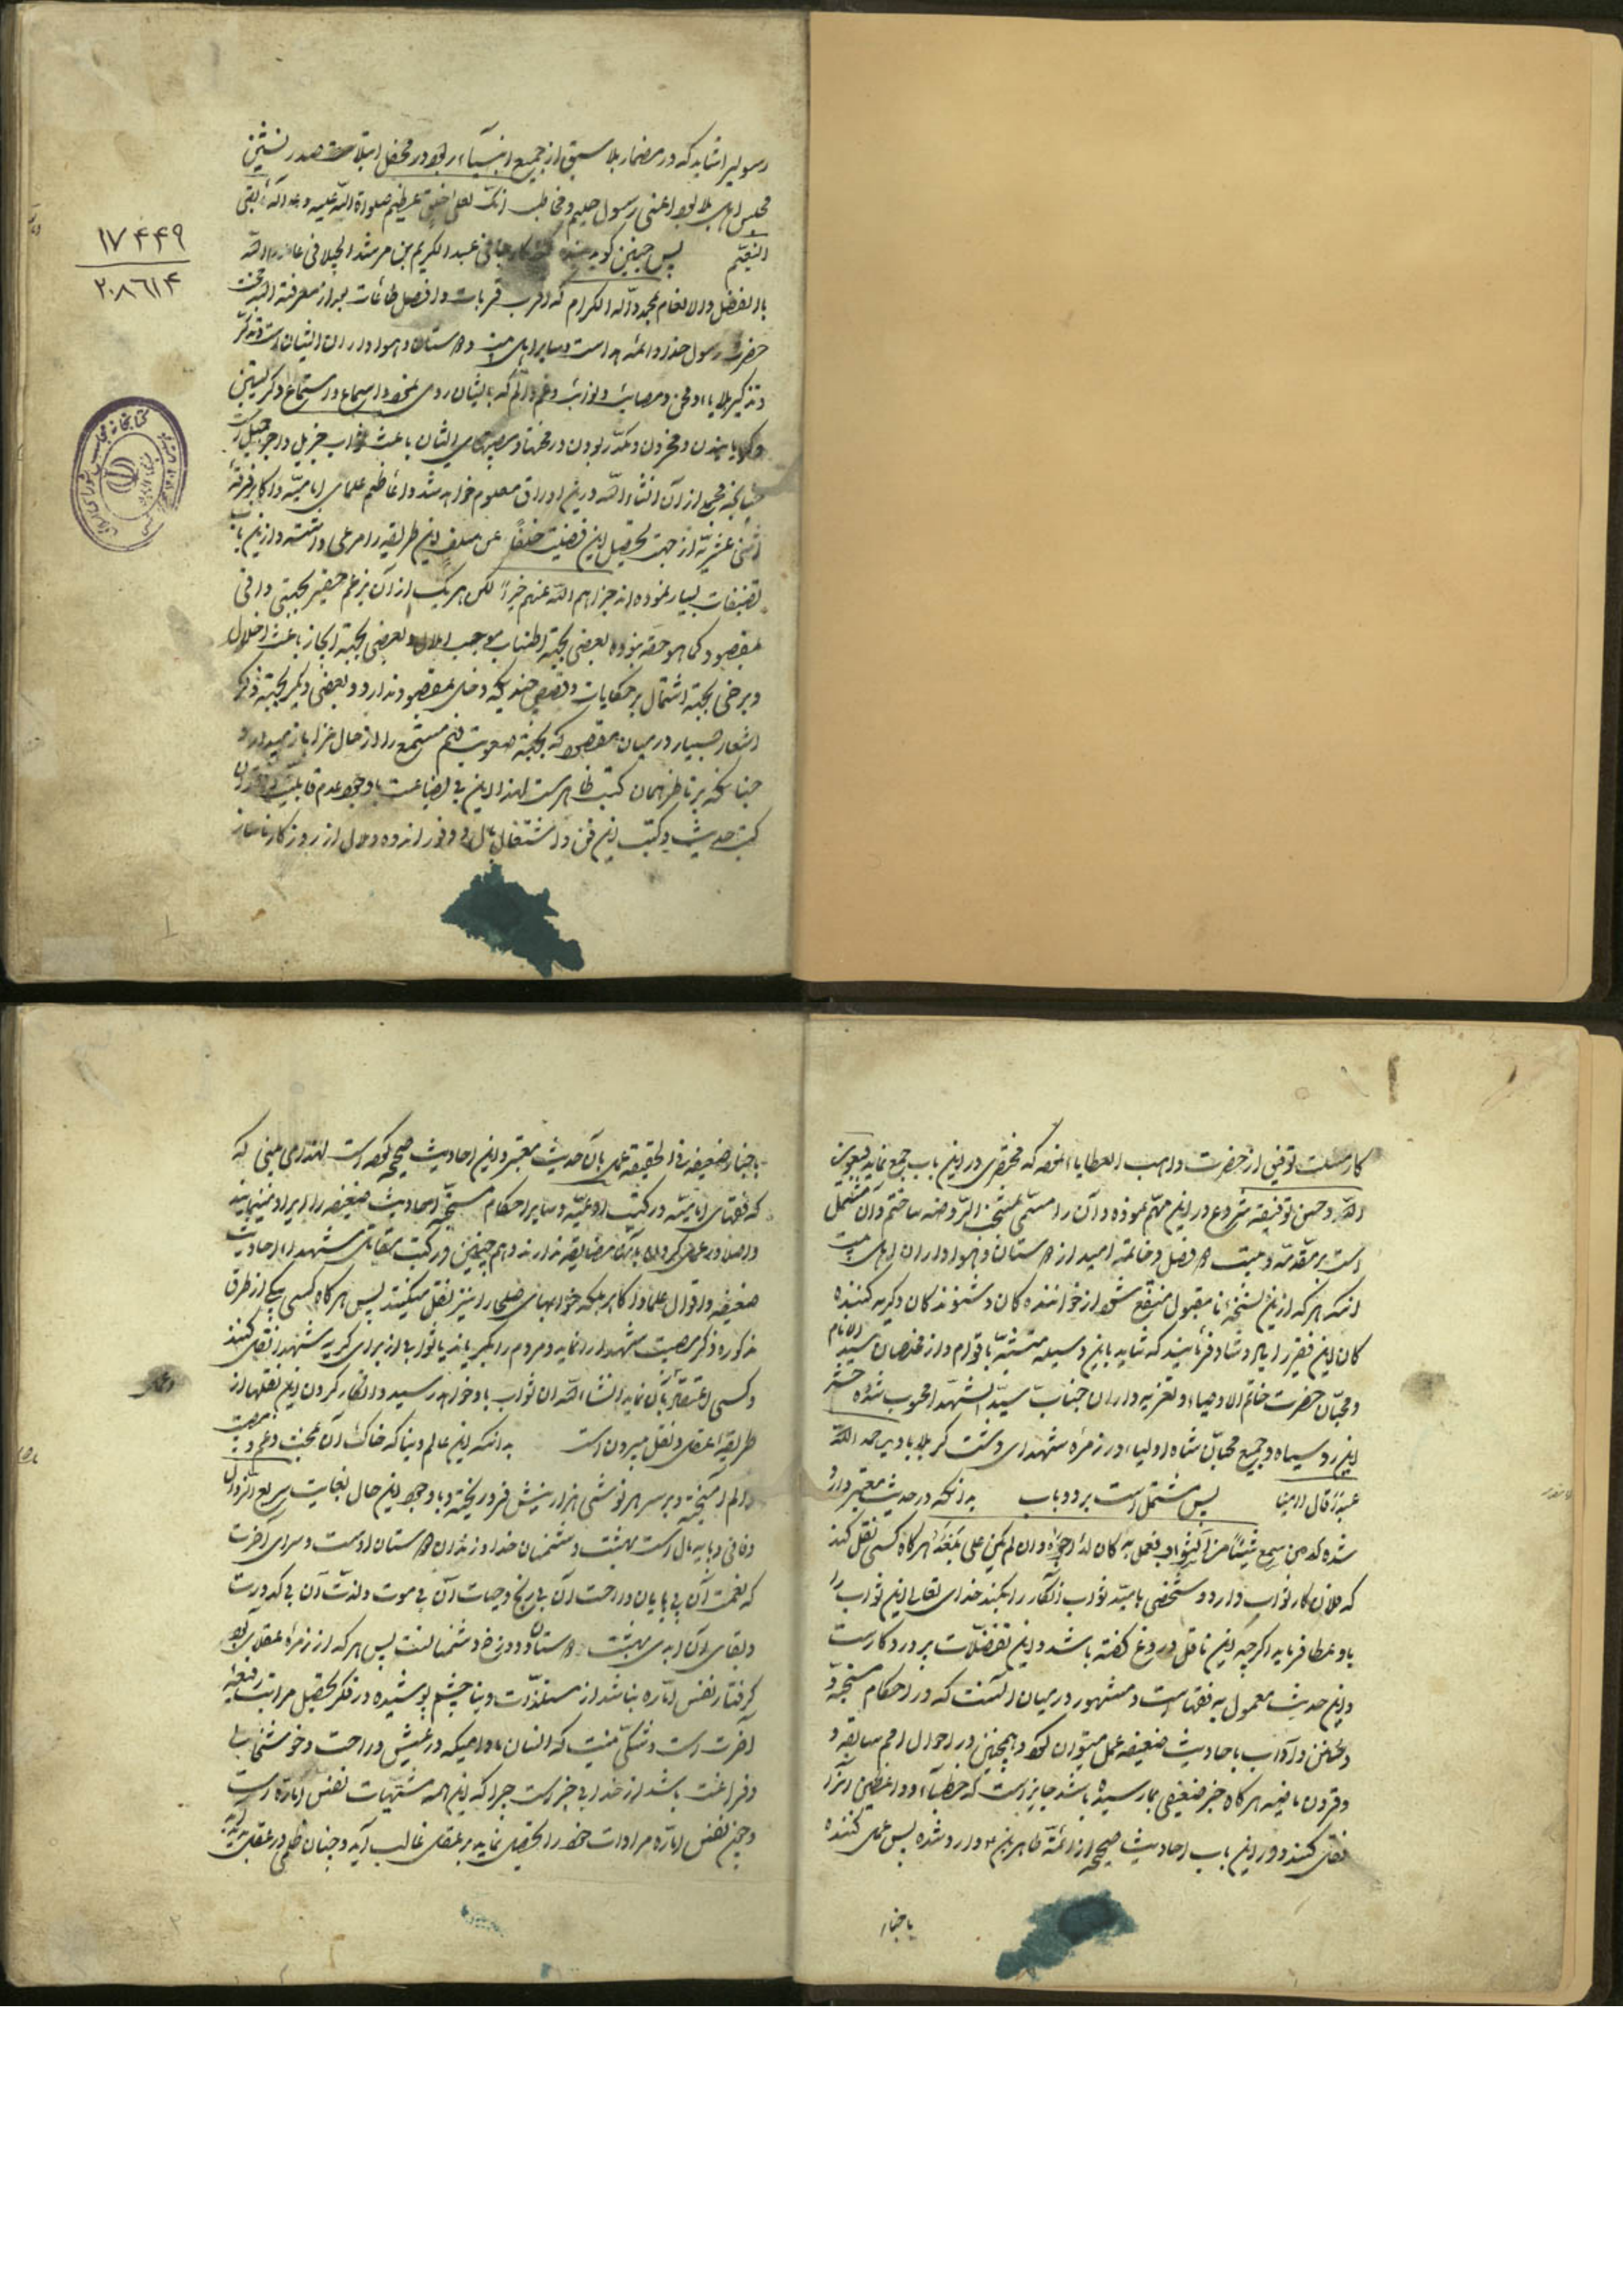 رسولیرا شاید که در مضمار بلا سبق از جمیع انبیاء ربود و در محفل ابتلا صدر نشین
مجلس اهل بلا بود اعنی رسول حلیم و مخاطب انک لعلی خلق عظیم صلواة الله علیه و علی آله
پس چنین کوید بنده عبد الکریم بن مرشد الجیلانی عاملهما الله
بالفضل والانعام بمحمد وآله الکرام که اقرب قربات و افضل طاعات بعد از معرفة الله محبت
حضرت رسول خدا و ائمه هدا است و سایر اهل بیت و دوستان و هواداران ایشان است و تذکر
و تذکیر بلایا و محن و مصایب و نوائب و غم و الم که بایشان روی نموده و اسماع و استماع و کریستن
و کریانیدن و محزون و مکدر بودن در محنتها و مصیبتهای ایشان باعث ثواب جزیل و اجر جمیل است
چنانچه مجمع از آن انشاء الله درین اوراق معلوم خواهد شد و اعاظم علمای امامیه و اکابر فرقه
اثنی عشریه از جهت تحصیل این فضیلت خلفاً عن سلف این طریقه را مرعی داشته و ازین باب
تصنیفات بسیار نموده اند جزاهم الله عنهم خیراً لکن هر یک از آن بزعم حقیر بحیثیتی وافی
بمقصود کما هو حقه نبوده بعضی بجهة اطناب موجب املال و بعضی بجهة ایجاز باعث اخلال
و برخی بجهة اشتمال بر حکایات و قصص چند که دخلی بمقصود ندارد و بعضی دیکر بجهة ذکر
اشعار بسیار در میان مقصود که بجهة صعوبت فهم مستمع را از حال عزا باز میدارد
چنانکه بر ناظر همان کتب ظاهرست لهذا این بی بضاعت با وجود عدم قابلیت
کتب حدیث و کتب این فن و اشتغال بال و وفور اندوه و ملال از روزکار ناساز
۱۷۴۴۹
۲۰۸۶۱۴
کار مسئلت توفیق از حضرت واهب العطایا نموده که مختصری در این باب جمع نماید بعون
الله و حسن توفیقه شروع در این مهم نموده و آن را مسمی بمنتخب الروضه ساختم و آن مشتمل
است بر مقدمه و بیست و فصل و خاتمه امید از دوستان و هواداران اهل بیت
آنکه هر که ازین نسخهٔ نا مقبول منتفع شود از خواننده کان و شنونده کان و کریه کننده
کان این فقیر را یاد و شاد فرمایند که شاید باین وسیله متشبث باقوام و از مخلصان سید الانام
و محبان حضرت خاتم الاوصیاء و تعزیه داران جناب سید الشهدا محسوب شده حشر
این رو سیاه و جمیع محبان شاه اولیاء در زمرهٔ شهدای دشت کربلا باد یرحم الله
عبداً قال آمینا پس مشتمل است بر دو باب بدانکه در حدیث معتبر وارد
شده که من سمع شیئاً من الثواب فعمل به کان له اجره وان لم یکن علی بلغه هر کاه کسی نقل کند
که فلان کار ثواب دارد و شخصی بامید ثواب آنکار را بکند خدای تعالی این ثواب را
باو عطا فرماید اکرچه این ناقل دروغ کفته باشد و این تفضلات پروردکارست
و این حدیث معمول به فقهاست و مشهور در میان آنست که در احکام مستحبه
و سنن و آداب باحادیث ضعیفه عمل میتوان کرد و همچنین در احوال امم سابقه و
و قرون ماضیه هر کاه خبر ضعیفی بما رسیده باشد جایزست که خطباء و واعظین آنرا
نقل کنند و در این باب احادیث صحیحه از ائمهٔ طاهرین وارد شده پس عمل کننده
باخبار
باخبار ضعیفه فی الحقیقه عمل بآن حدیث معتبر و این احادیث صحیحه کرده است لهذا می بینی که
که فقهای امامیه در کتب ادعیه و سایر احکام مستحبه احادیث ضعیفه را ایراد مینمایند
و اصلا در عمل کردن بدان مضایقه ندارند و هم چنین در کتب مقاتل شهدا احادیث
ضعیفه و اقوال علما و اکابر بلکه خوابهای صلحا را نیز نقل میکنند پس هر کاه کسی یکی از طرق
مذکوره ذکر مصیبت شهدا را نماید و مردم را بکریاند یا ثوابی از برای کریه شهدا نقل کنند
و کسی اعتقاد بآن نماید انشاء الله آن ثواب باو خواهد رسید و انکار کردن این نقلها از
طریقهٔ عقل و نقل بیرون است بدانکه این عالم دنیا که خاک آن بمحنت و غم و مصیبت
و الم آمیخته و بر سر هر نوشی هزار نیش فرو ریخته و با وجود این حال بغایت سریع الزوال
و فانی و بایه مال است بهشت دشمنان خدا و زندان دوستان اوست و سرای آخرت
که نعمت آن بی پایان و راحت آن بی رنج و حیات آن بی موت و لذت آن بی کدورت
و بقای آن ابدی بهشت دوستان و دوزخ دشمنانست پس هر که از زمرهٔ عقلا بود
کرفتار نفس اماره نباشد از مستلذات دنیا چشم پوشیده در فکر تحصیل مراتب رفیعهٔ
آخرت است و شکی نیست که انسان مادامیکه در عیش و راحت و خوشحالی
و فراغت باشد از خدا بی خبر است چرا که این همه مشتهیات نفس اماره است
و چون نفس اماره مرادات خود را تحصیل نماید بر عقل غالب آید و چنان ظلمی در عقل پدید آید